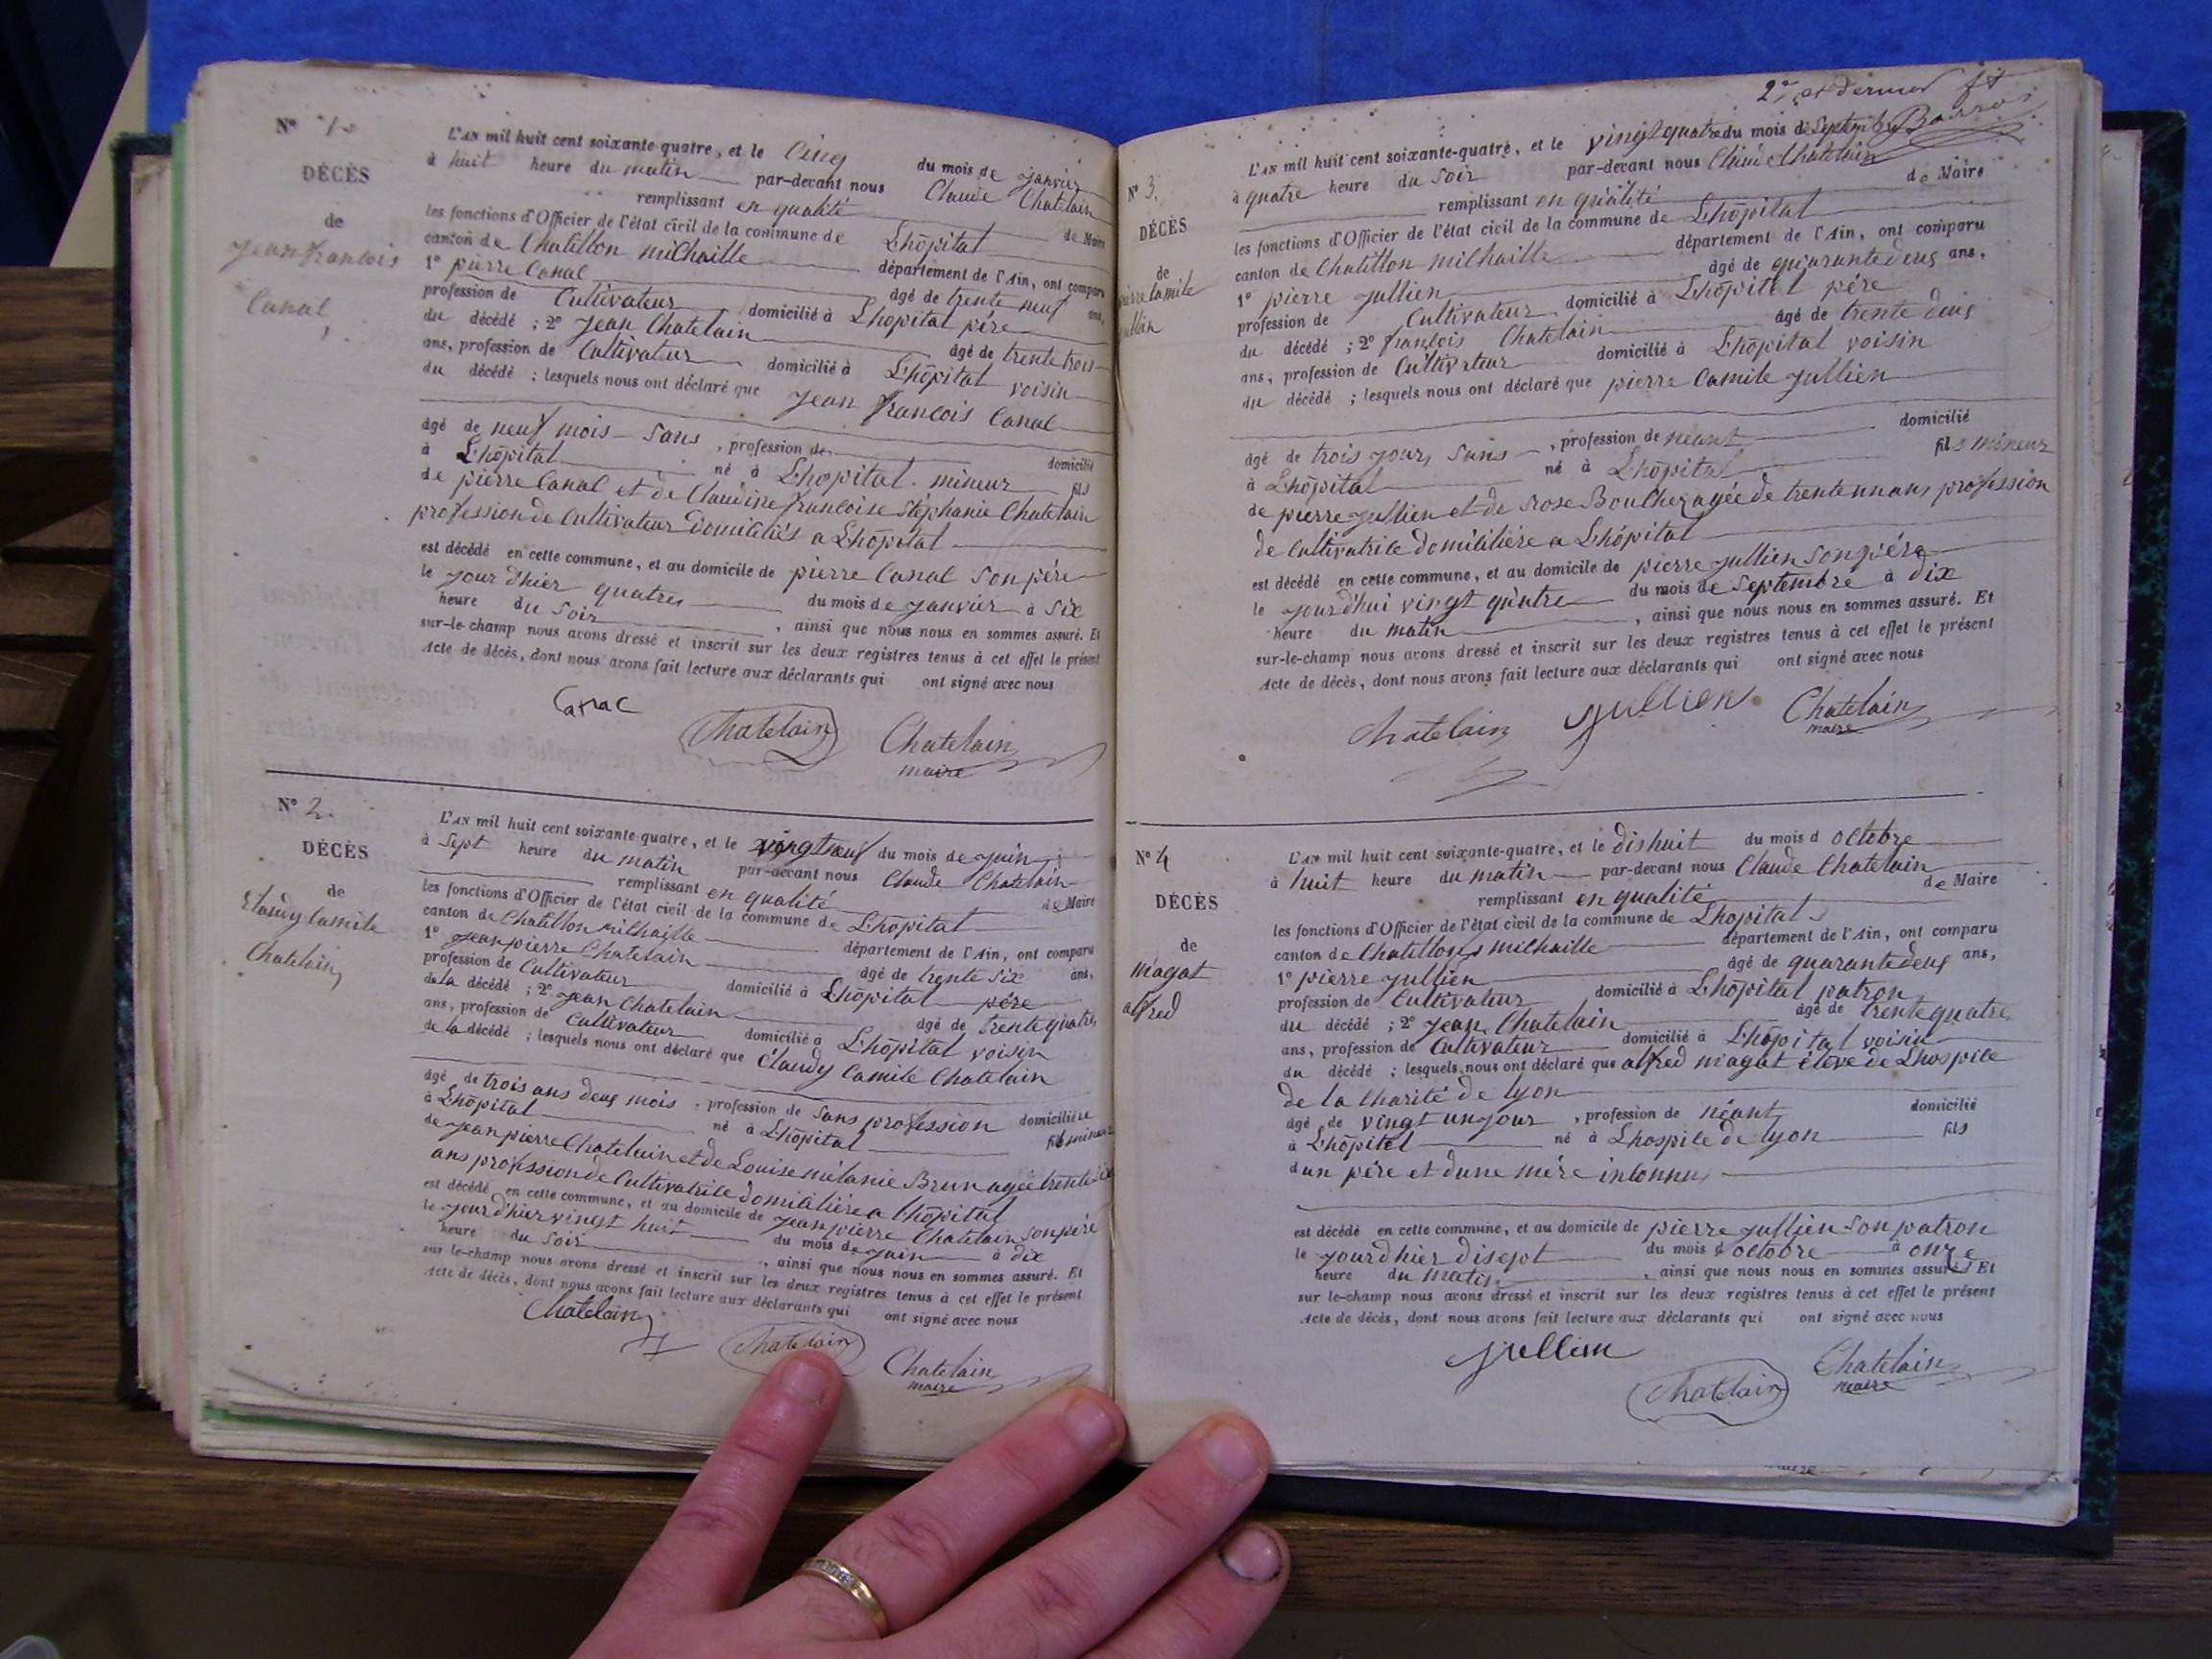 N° 1
DÉCÈS
de
Jean francois
Canal
L'AN mil huit cent soixante-quatre, et le Cinq du mois de janvier
à huit heure du matin par-devant nous Claude Chatelain
remplissant en qualité de Maire
les fonctions d'Officier de l'état civil de la commune de Lhôpital
canton de Chatillon michaille département de l'Ain, ont comparu
1° pierre Canal âgé de trente neuf ans,
profession de Cultivateur domicilié à Lhopital pére
du décédé ; 2° Jean Chatelain âgé de trente trois
ans, profession de Cultivateur domicilié à Lhôpital voisin
du décédé ; lesquels nous ont déclaré que Jean francois Canal
âgé de neuf mois Sans , profession de domicilié
à Lhôpital né à Lhopital mineur fils
de pierre Canal et de Claudine francoise Stéphanie Chatelain
profession de Cultivateur domiciliés a Lhôpital
est décédé en cette commune, et au domicile de pierre Canal Son pére
le jour dhier quatres du mois de janvier à Six
heure du Soir , ainsi que nous nous en sommes assuré. Et
sur-le-champ nous avons dressé et inscrit sur les deux registres tenus à cet effet le présent
Acte de décès, dont nous avons fait lecture aux déclarants qui ont signé avec nous
Chatelain Chatelain
maire
N° 2.
DÉCÈS
de
Claudy Camile
Chatelain
L'AN mil huit cent soixante-quatre, et le du mois de juin
à Sept heure du matin par-devant nous Claude Chatelain
remplissant en qualité de Maire
les fonctions d'Officier de l'état civil de la commune de Lhôpital
canton de Chatillon michaille département de l'Ain, ont comparu
1° jean pierre Chatelain âgé de trente Six ans,
profession de Cultivateur domicilié à Lhôpital pére
de la décédé ; 2° jean Chatelain âgé de trente quatre
ans, profession de Cultivateur domicilié à Lhôpital voisin
de la décédé ; lesquels nous ont déclaré que Claudy Camile Chatelain
âgé de trois ans deux mois , profession de Sans profession domiciliére
à Lhôpital né à Lhôpital mineur
de jean pierre Chatelain et de Louise mélanie Brun agée trente
ans profession de Cultivatrice domiciliére a lhôpital
est décédé en cette commune, et au domicile de jean pierre Chatelain Son pére
le jour dhier vingt huit du mois de juin à dix
heure du Soir , ainsi que nous nous en sommes assuré. Et
sur le-champ nous avons dressé et inscrit sur les deux registres tenus à cet effet le présent
Acte de décès, dont nous avons fait lecture aux déclarants qui ont signé avec nous
Chatelain
Chatelain Chatelain
maire
2e et dernier ft
N° 3.
DÉCÈS
de
pierre Camile
jullien
L'AN mil huit cent soixante-quatre, et le vingt quatre du mois de Septembre
à quatre heure du Soir par-devant nous Claude Chatelain
remplissant en qualité de Maire
les fonctions d'Officier de l'état civil de la commune de Lhôpital
canton de Chatillon michaille département de l'Ain, ont comparu
1° pierre jullien âgé de quarante deux ans,
profession de Cultivateur domicilié à Lhôpital pére
du décédé ; 2° francois Chatelain âgé de trente deux
ans, profession de Cultivateur domicilié à Lhôpital voisin
du décédé ; lesquels nous ont déclaré que pierre Camile jullien
âgé de trois jours Sans , profession de néant domicilié
à Lhôpital né à Lhôpital fils mineur
de pierre jullien et de rose Boucher agée de trente un ans profession
de Cultivatrice domiciliére a Lhôpital
est décédé en cette commune, et au domicile de pierre jullien Son pére
le jourdhui vingt quatre du mois de Septembre à dix
heure du matin , ainsi que nous nous en sommes assuré. Et
sur-le-champ nous avons dressé et inscrit sur les deux registres tenus à cet effet le présent
Acte de décès, dont nous avons fait lecture aux déclarants qui ont signé avec nous
Chatelain jullien Chatelain
maire
N° 4
DÉCÈS
de
magat
alfred
L'AN mil huit cent soixante-quatre, et le dishuit du mois d octobre
à huit heure du matin par-devant nous Claude Chatelain
remplissant en qualité de Maire
les fonctions d'Officier de l'état civil de la commune de Lhopital
canton de Chatillon michaille département de l'Ain, ont comparu
1° pierre jullien âgé de quarante deux ans,
profession de Cultivateur domicilié à Lhôpital patron
du décédé ; 2° jean Chatelain âgé de trente quatre
ans, profession de Cultivateur domicilié à Lhôpital voisin
du décédé ; lesquels nous ont déclaré que alfred magat éléve de Lhospice
de la Charité de lyon
âgé de vingt un jour , profession de néant domicilié
à Lhôpital né à Lhospice de lyon fils
d'un pére et dune mére inconnus
est décédé en cette commune, et au domicile de pierre jullien Son patron
le jour dhier disept du mois d octobre à onze
heure du matin , ainsi que nous nous en sommes assuré. Et
sur le-champ nous avons dressé et inscrit sur les deux registres tenus à cet effet le présent
Acte de décès, dont nous avons fait lecture aux déclarants qui ont signé avec nous
jullien Chatelain Chatelain
maire